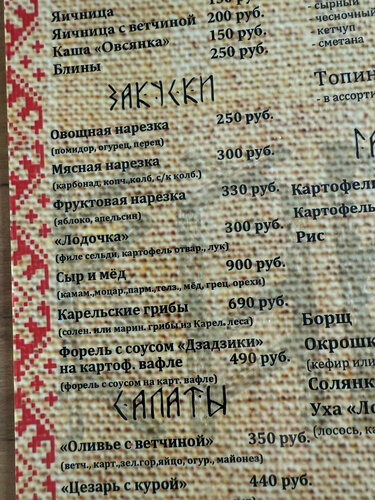 Яичница
Яичница с ветчиной 200 руб.
Каша «Овсянка» 150 руб.
Блины 250 руб.
- сырный
- чесночный
- кетчуп
- сметана
ЗАКУСКИ
Топин
- в ассорти
Овощная нарезка 250 руб.
(помидор, огурец, перец)
Мясная нарезка 300 руб.
(карбонад, копч.,колб, с/к колб.)
Фруктовая нарезка 330 руб.
(яблоко, апельсин)
Картофель
«Лодочка» 300 руб.
(филе сельди, картофель отвар., лук)
Картофель
Рис
Сыр и мёд 900 руб.
(камам.,моцар.,парм.,голз., мёд, грец. орехи)
Карельские грибы 690 руб.
(солен. или марин. грибы из Карел. леса)
Борщ
Форель с соусом «Дзадзики»
на картоф. вафле 490 руб.
(форель с соусом на карт. вафле)
Окрошк
(кефир или
Солянк
САЛАТЫ
Уха «Ло
(лосось, ка
«Оливье с ветчиной» 350 руб.
(ветч., карт.,зел.гор,яйцо, огур., майонез)
«Цезарь с курой» 440 руб.